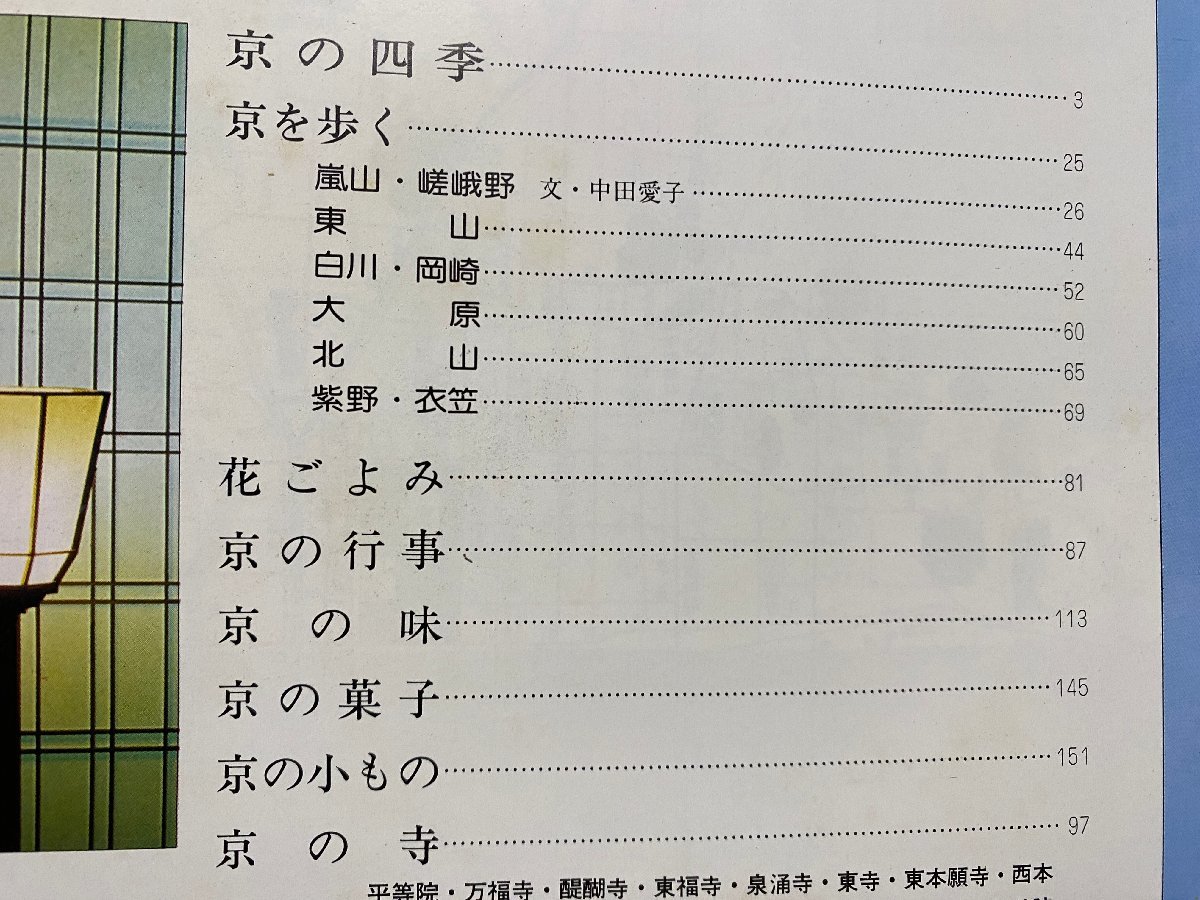 京の四季……3
京を歩く……25
嵐山・嵯峨野 文・中田愛子……26
東山……44
白川・岡崎……52
大原……60
北山……65
紫野・衣笠……69
花ごよみ……81
京の行事……87
京の味……113
京の菓子……145
京の小もの……151
京の寺……97
平等院・万福寺・醍醐寺・東福寺・泉涌寺・東寺・東本願寺・西本